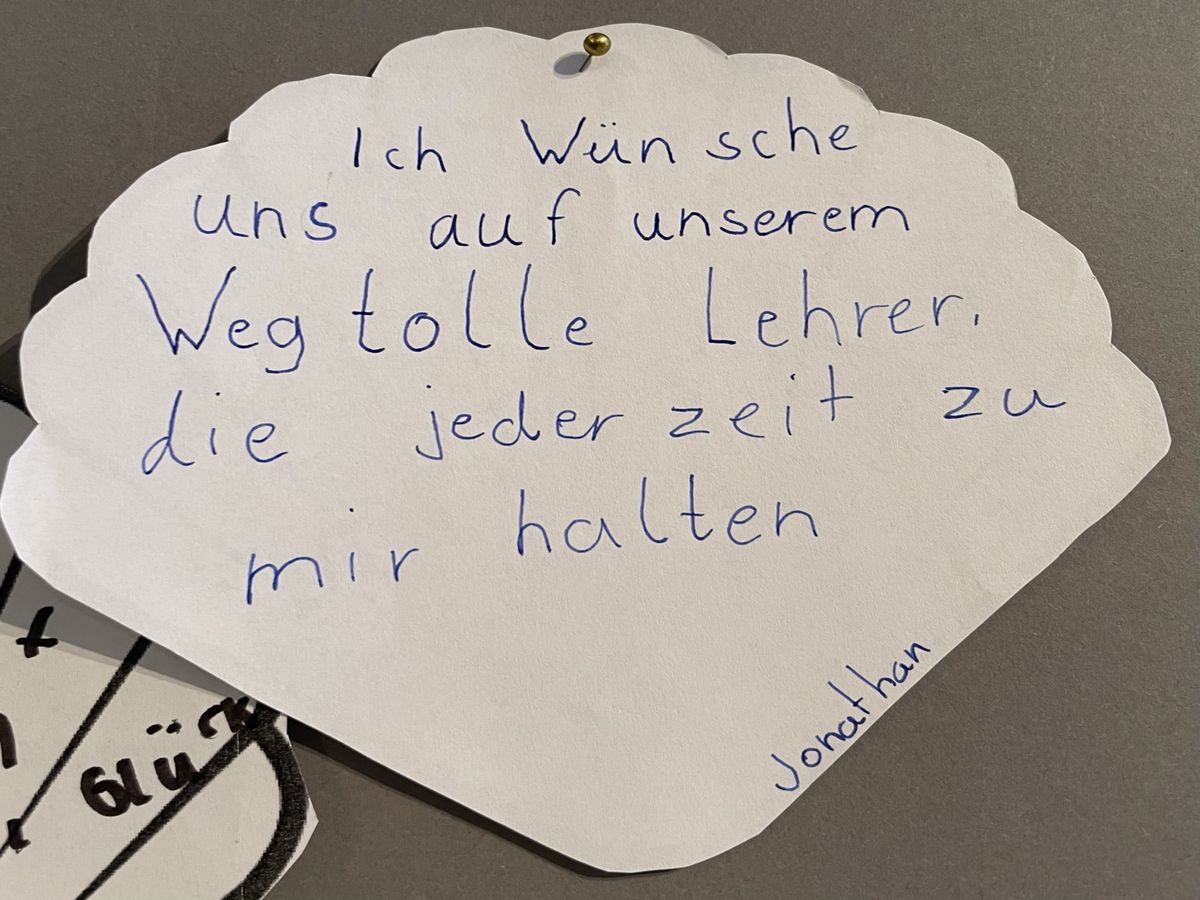 Ich Wünsche
uns auf unserem
Weg tolle Lehrer.
die jederzeit zu
mir halten
Jonathan
Glück